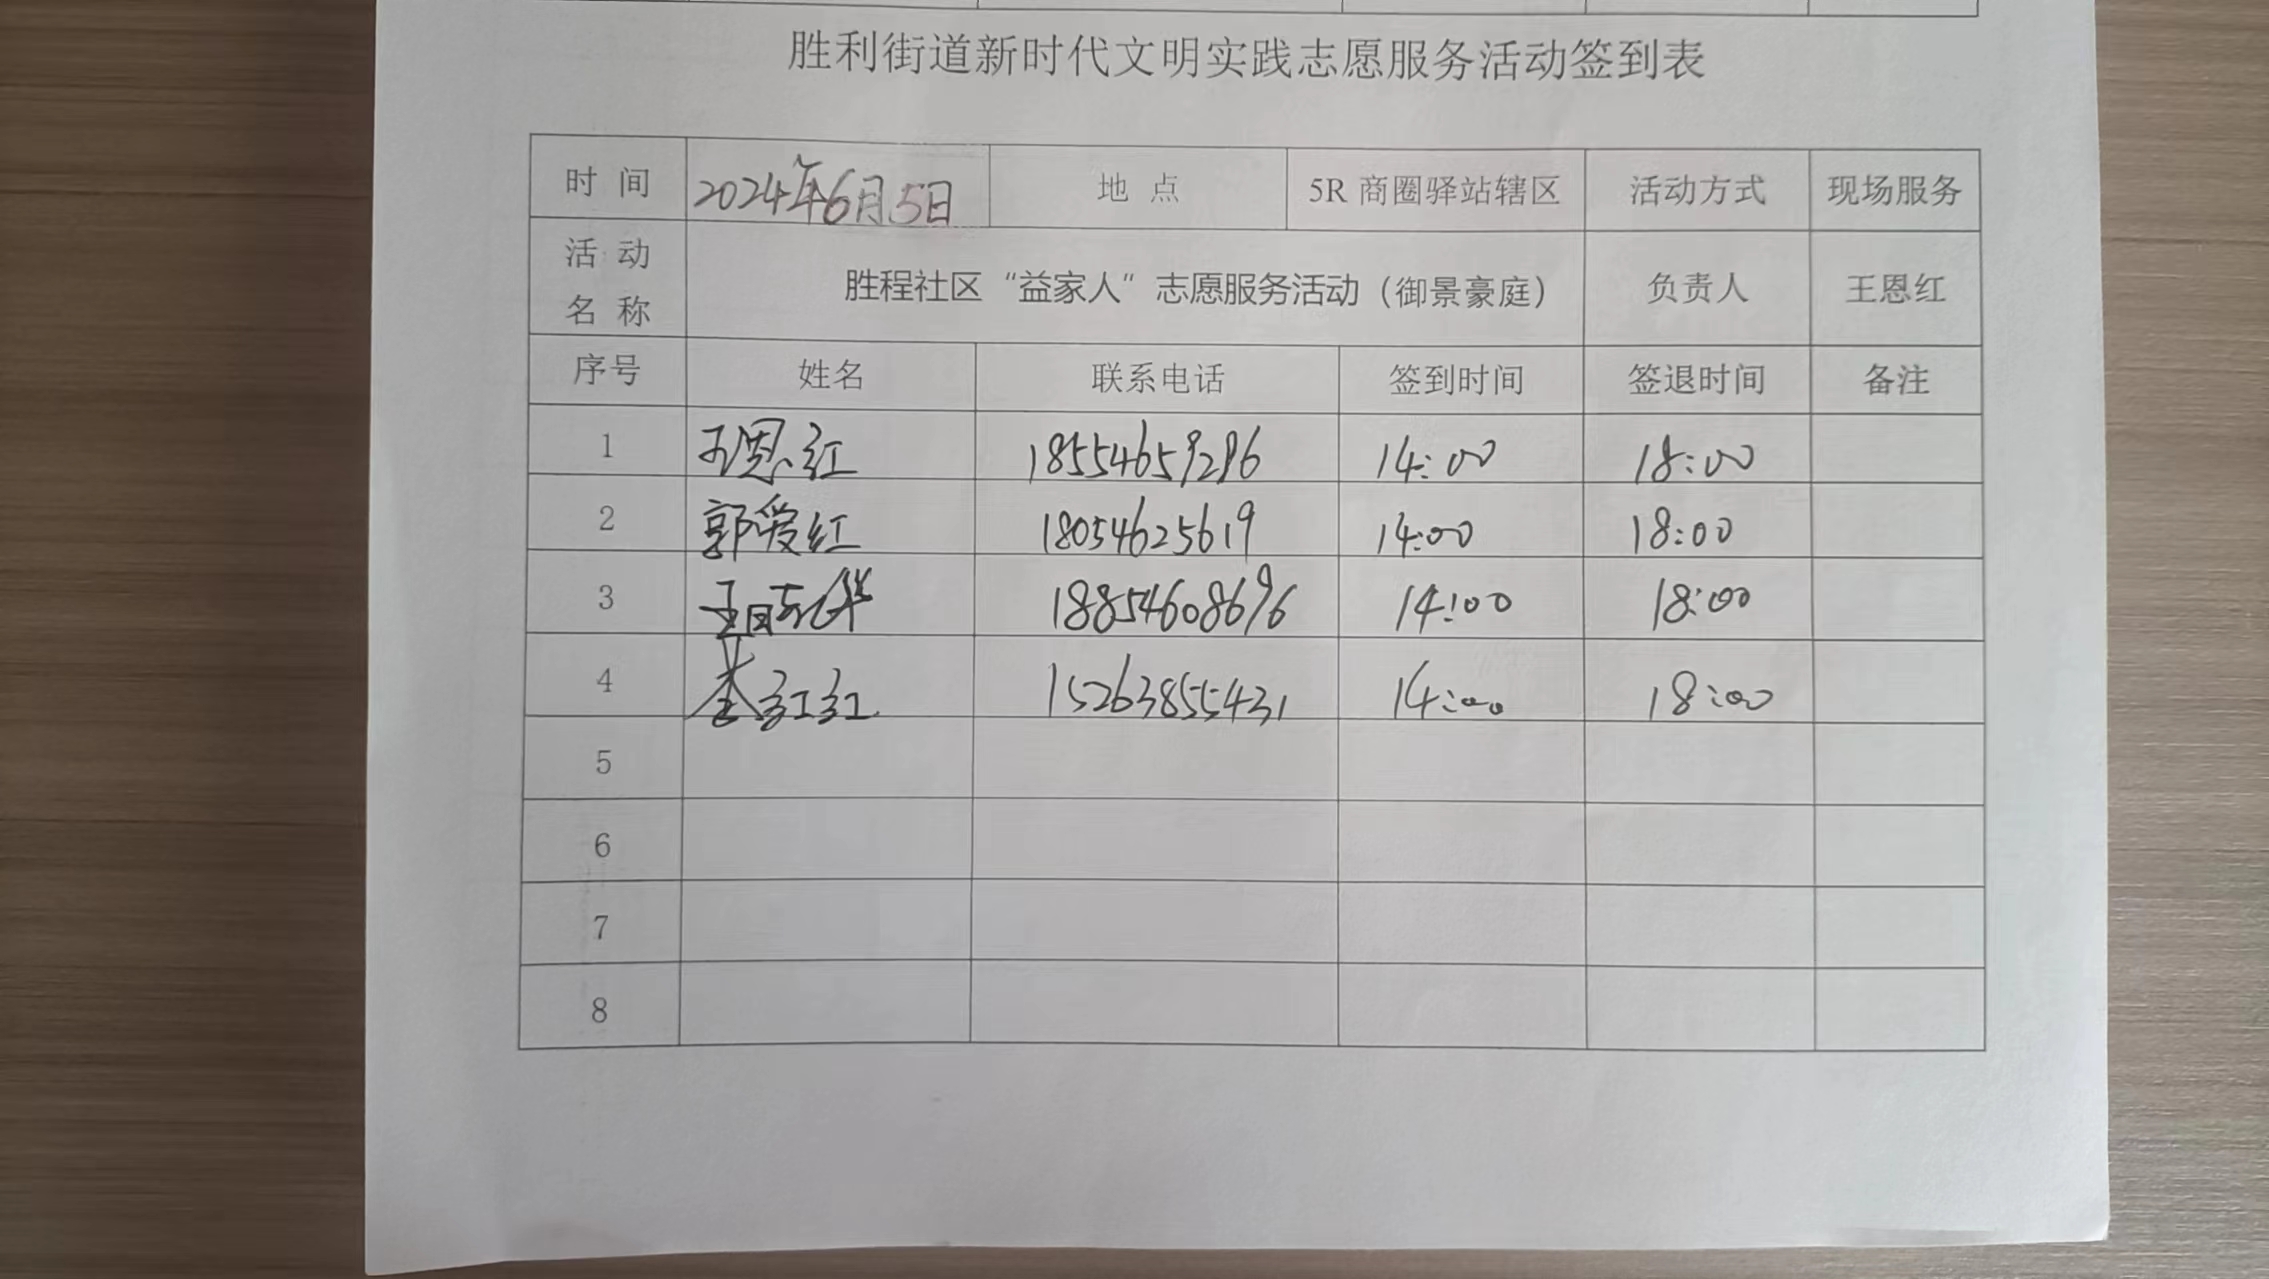 胜利街道新时代文明实践志愿服务活动签到表
时 间 2024年6月5日 地 点 5R 商圈驿站辖区 活动方式 现场服务
活 动
名 称 胜程社区“益家人”志愿服务活动（御景豪庭） 负责人 王恩红
序号 姓名 联系电话 签到时间 签退时间 备注
1 王恩红 18554659296 14:00 18:00
2 郭爱红 18054625619 14:00 18:00
3 18854608696 14:00 18:00
4 红红 15263855431 14:00 18:00
5
6
7
8